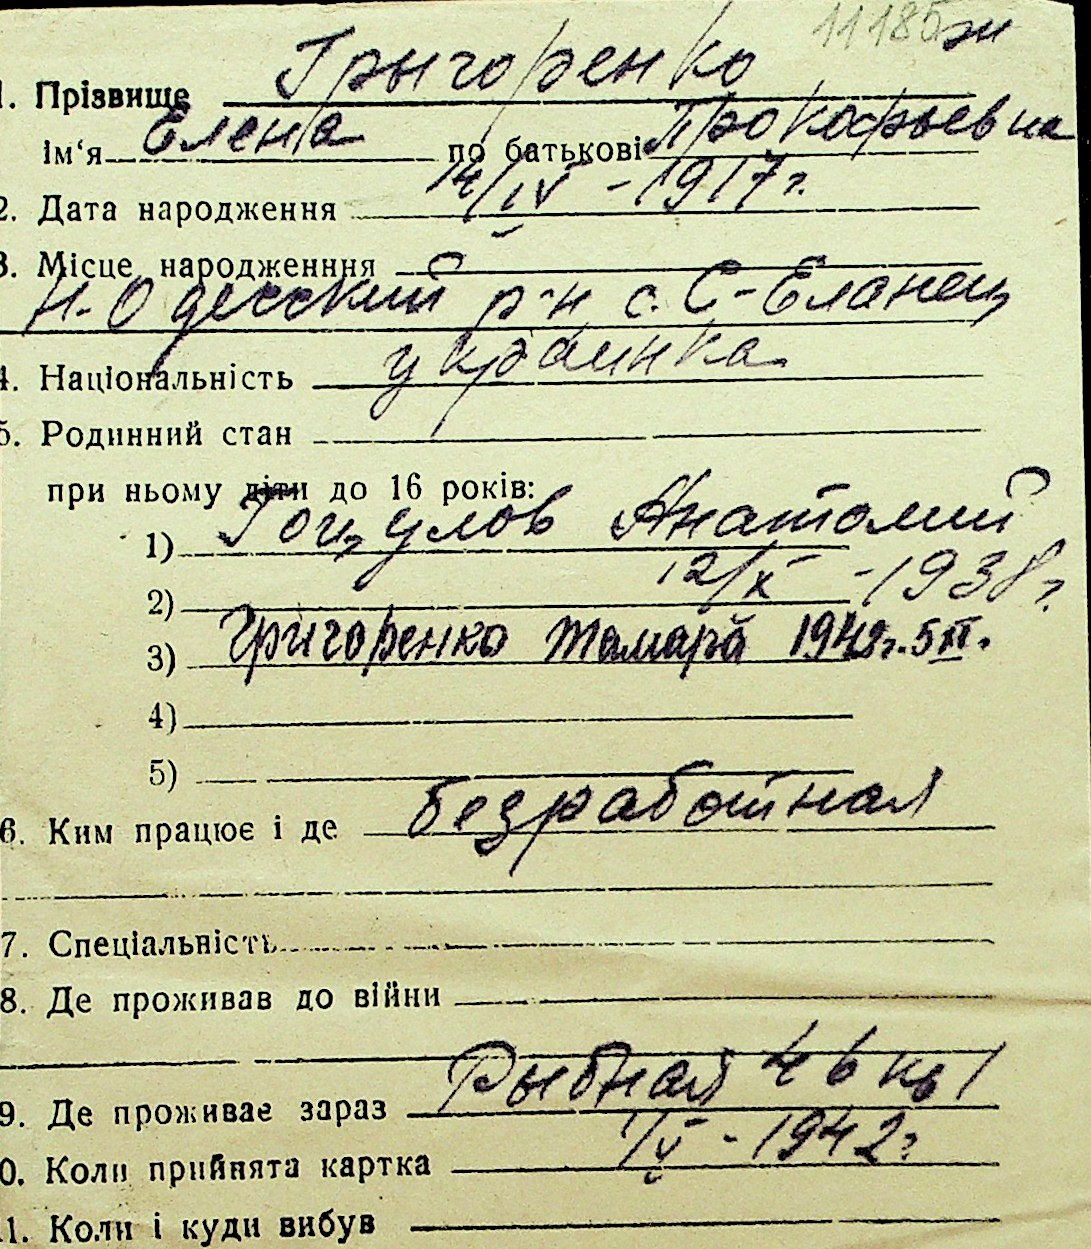 11185 ж
1. Прізвище Грыгоренко
ім‘я Елена по батькові Прокофьевна
2. Дата народження 14/IV - 1917 г.
3. Місце народженння
Н. Одесский р-н с. С-Еланец
4. Національність украинка
5. Родинний стан
при ньому діти до 16 років:
1) Гоцулов Анатолий
2) 12/X - 1938 г.
3) Григоренко Тамара 1942 г. 5 XI.
4)
5)
6. Ким працює і де безработная
7. Спеціальність
8. Де проживав до війни
9. Де проживає зараз Рыбная 46 кв 1
10. Коли прийнята картка 1/V - 1942 г.
11. Коли і куди вибув